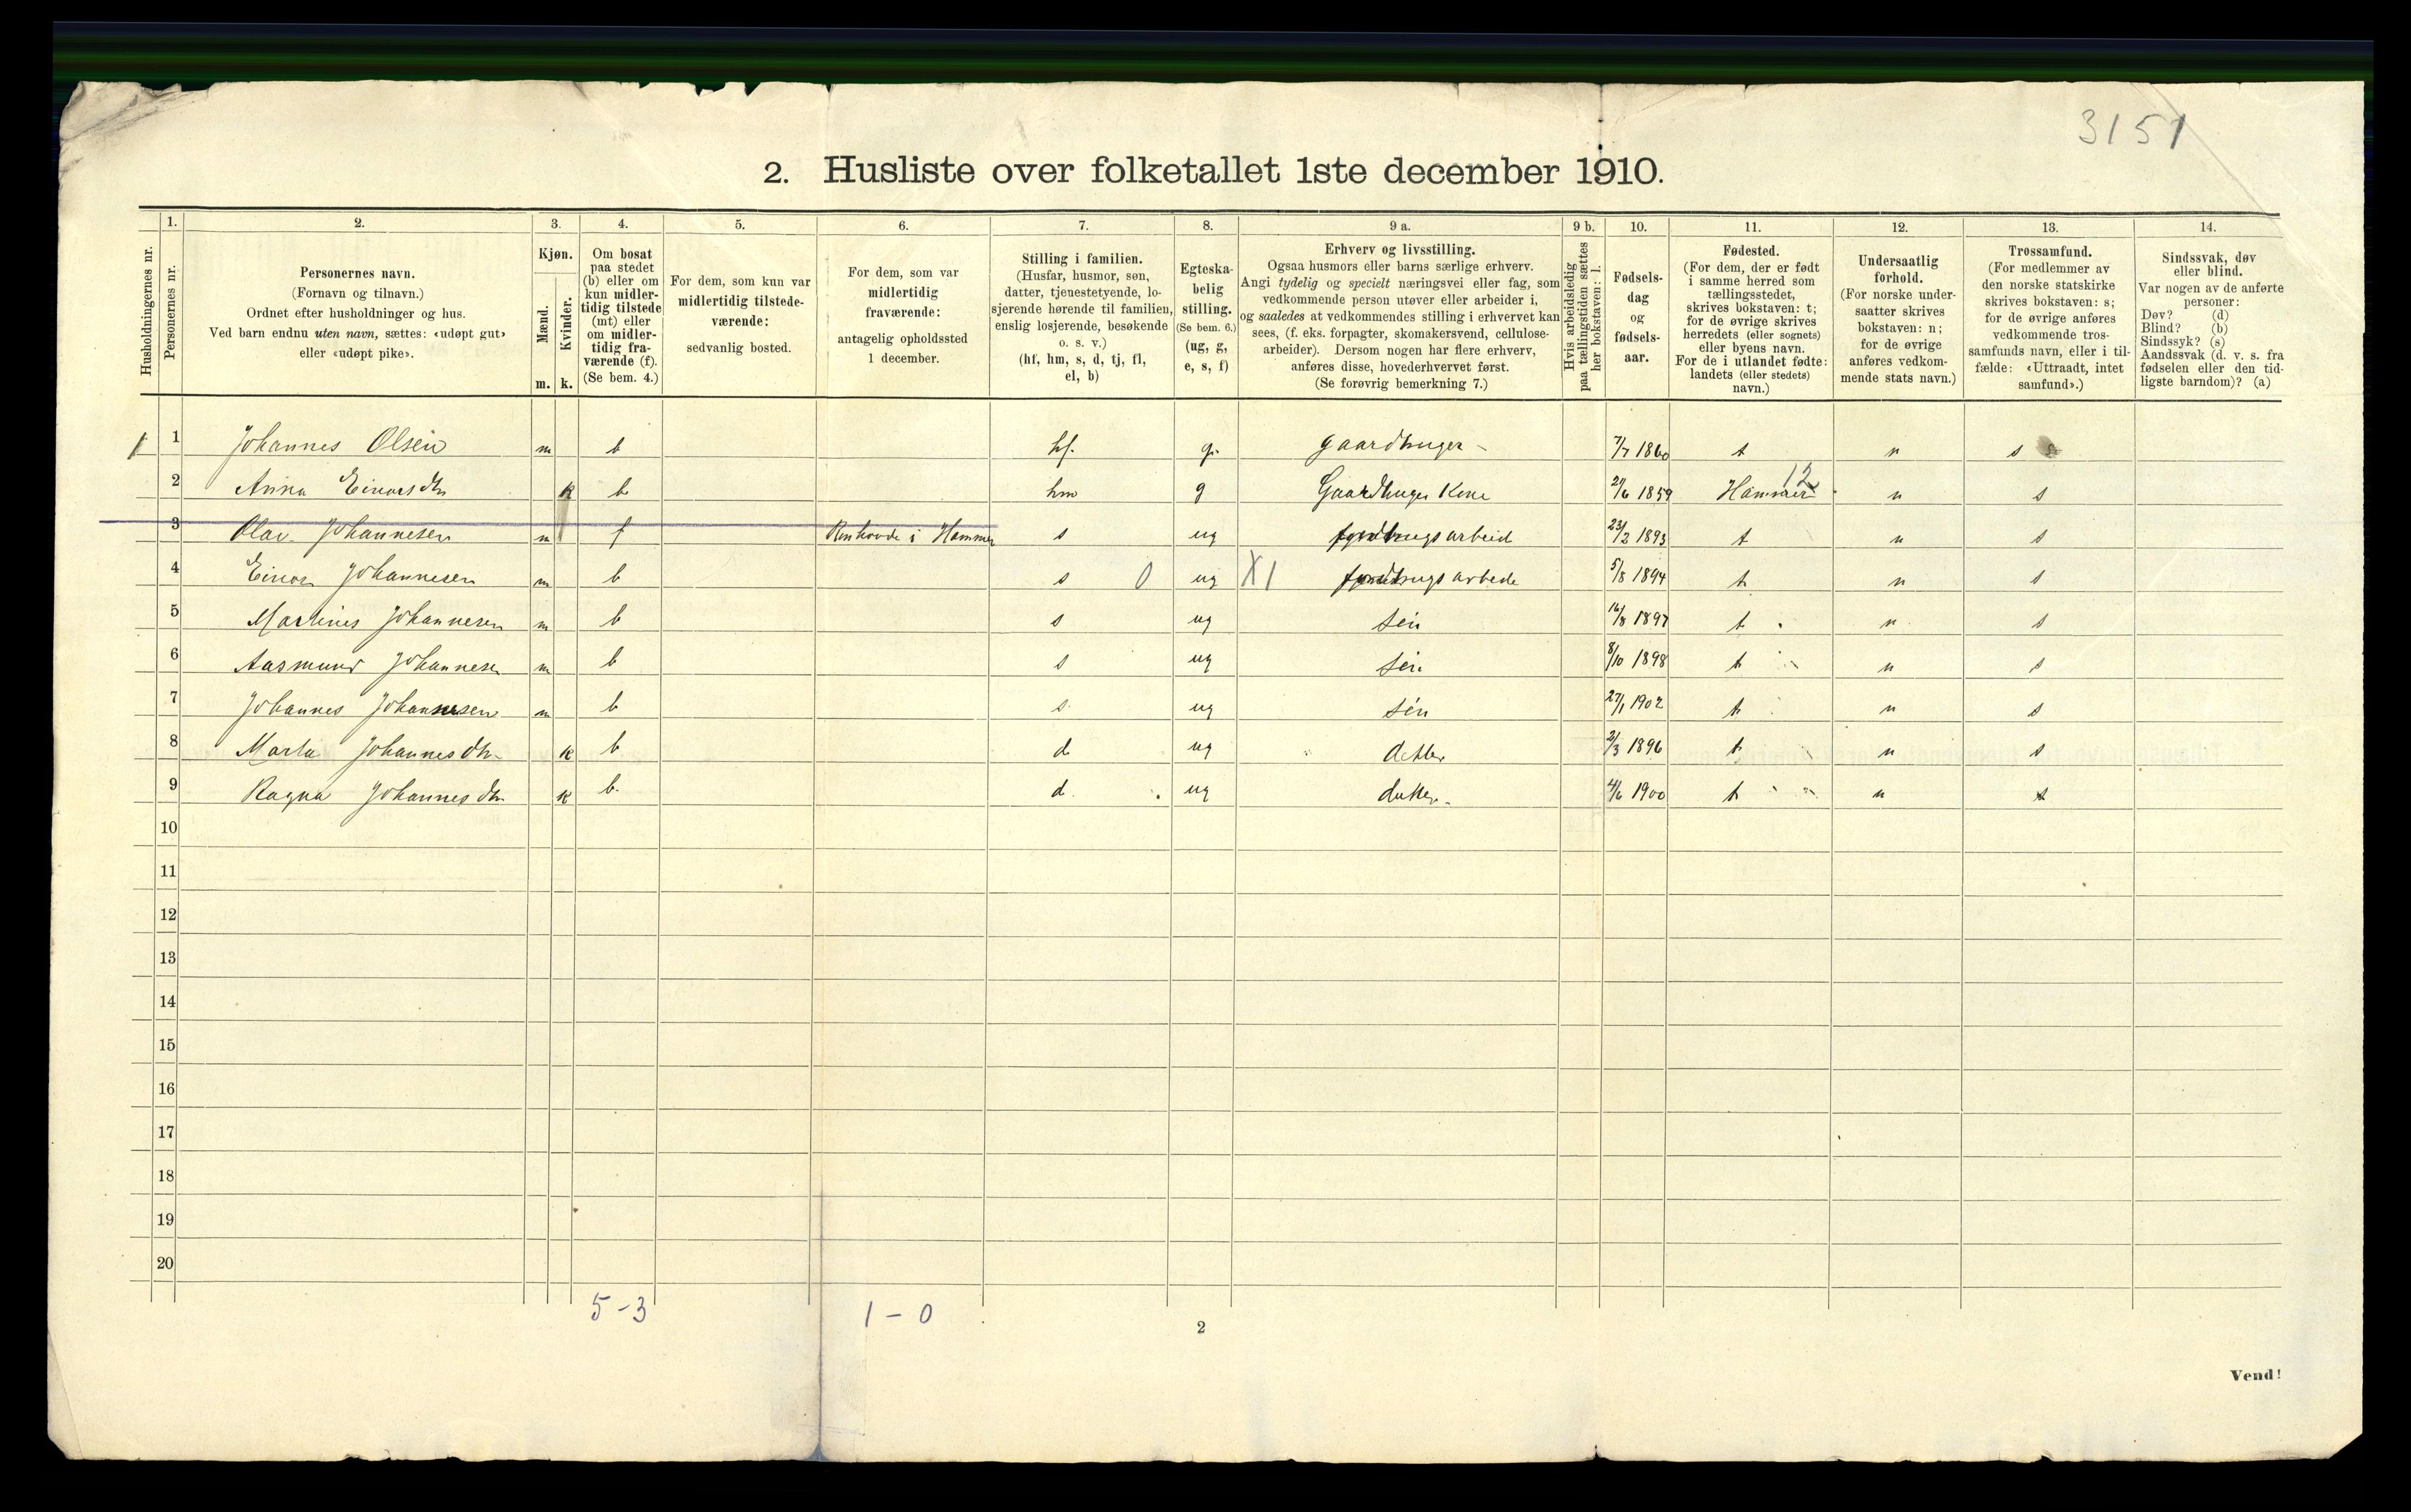 3151
2. Husliste over folketallet 1ste december 1910.
Husholdningernes nr.
1.
Personernes nr.
2.
Personernes navn.
(Fornavn og tilnavn.)
Ordnet efter husholdninger og hus.
Ved barn endnu uten navn, sættes: «udøpt gut»
eller «udøpt pike».
3.
Kjøn.
Mænd.
Kvinder.
m. k.
4.
Om bosat
paa stedet
(b) eller om
kun midler-
tidig tilstede
(mt) eller
om midler-
tidig fra-
værende (f).
(Se bem. 4.)
5.
For dem, som kun var
midlertidig tilstede-
værende:
sedvanlig bosted.
6.
For dem, som var
midlertidig
fraværende:
antagelig opholdssted
1 december.
7.
Stilling i familien.
(Husfar, husmor, søn,
datter, tjenestetyende, lo-
sjerende hørende til familien,
enslig losjerende, besøkende
o. s. v.)
(hf, hm, s, d, tj, fl,
el, b)
8.
Egteska-
belig
stilling.
(Se bem. 6.)
(ug, g,
e, s, f)
9 a.
Erhverv og livsstilling.
Ogsaa husmors eller barns særlige erhverv.
Angi tydelig og specielt næringsvei eller fag, som
vedkommende person utøver eller arbeider i,
og saaledes at vedkommendes stilling i erhvervet kan
sees, (f. eks. forpagter, skomakersvend, cellulose-
arbeider). Dersom nogen har flere erhverv,
anføres disse, hovederhvervet først.
(Se forøvrig bemerkning 7.)
9 b.
Hvis arbeidsledig
paa tællingstiden sættes
her bokstaven: l.
10.
Fødsels-
dag
og
fødsels-
aar.
11.
Fødested.
(For dem, der er født
i samme herred som
tællingsstedet,
skrives bokstaven: t;
for de øvrige skrives
herredets (eller sognets)
eller byens navn.
For de i utlandet fødte:
landets (eller stedets)
navn.)
12.
Undersaatlig
forhold.
(For norske under-
saatter skrives
bokstaven: n;
for de øvrige
anføres vedkom-
mende stats navn.)
13.
Trossamfund.
(For medlemmer av
den norske statskirke
skrives bokstaven: s;
for de øvrige anføres
vedkommende tros-
samfunds navn, eller i til-
fælde: «Uttraadt, intet
samfund».)
14.
Sindssvak, døv
eller blind.
Var nogen av de anførte
personer:
Døv? (d)
Blind? (b)
Sindssyk? (s)
Aandssvak (d. v. s. fra
fødselen eller den tid-
ligste barndom)? (a)
1 1 Johannes Olsen m b hf. g. gaardbruger - 7/7 1860 t n s
2 Anna Einarsdtr k b hm g Gaardbruger Kone 21/6 1859 Hammer 12 n s
3 Olav Johannesen m f i Hammer s ug arbeid 23/2 1893 t n s
4 Einar Johannesen m b s 0 ug X1 arbeide 5/8 1894 t n s
5 Martines Johannesen m b s ug sön 16/8 1897 t n s
6 Aasmund Johannesen m b s ug sön 8/10 1898 t n s
7 Johannes Johannesen m b s ug sön 27/1 1902 t n s
8 Marta Johannesdtr k b d ug datter 2/3 1896 t n s
9 Ragna Johannesdtr k b. d ug datter 4/6 1900 t n s
10
11
12
13
14
15
16
17
18
19
20
5-3 1-0
2
Vend!